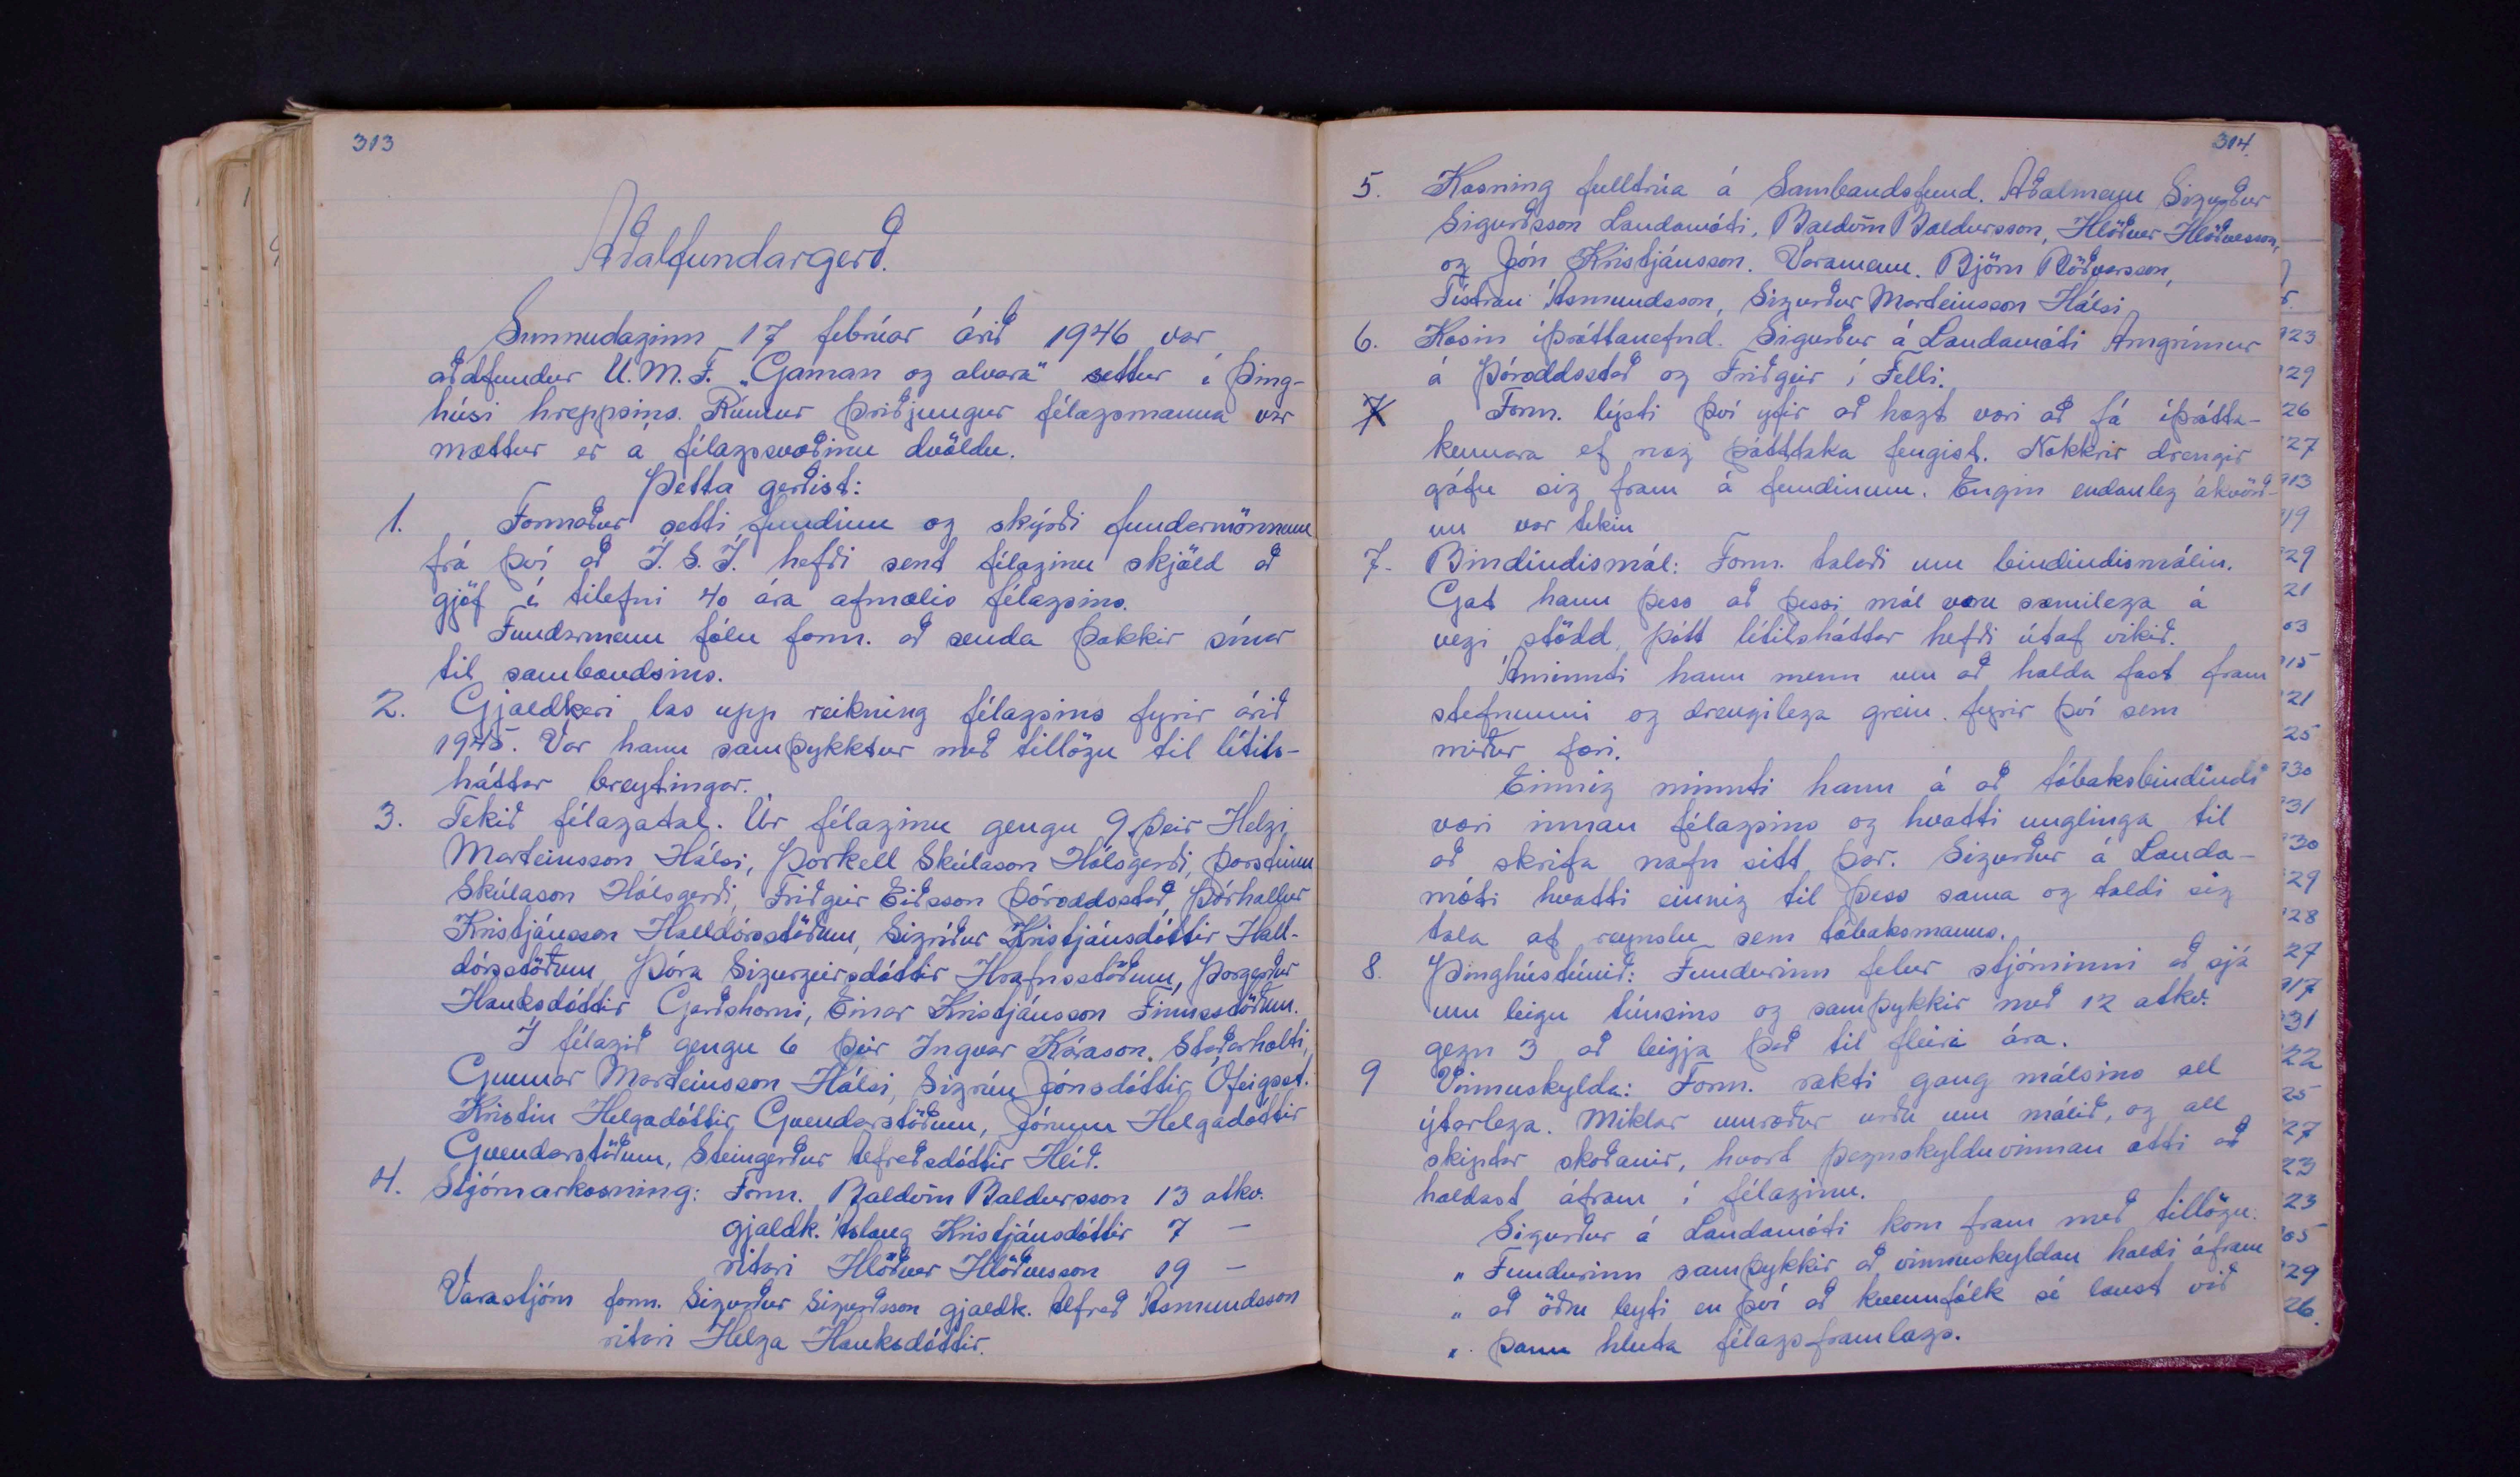 313
Aðalfundargerð.
Sunnudaginn 17 febrúar árið 1946 var
aðalfundur U.M.F. „Gaman og alvara" settur í þing-
húsi hreppsins. Rúmur þriðjungur félagsmanna var
mættur er á félagssvæðinu dvöldu.
Þetta gerðist:
1. Formaður setti fundinn og skýrði fundarmönnum
frá því að Í.S.Í. hefði sent félaginu skjöld að
gjöf í tilefni 40 ára afmælis félagsins.
Fundarmenn fólu form. að senda þakkir sínar
til sambandsins.
2. Gjaldkeri las upp reikning félagsins fyrir árið
1945. Var hann samþykktur með tillögu til lítils-
háttar breytingar.
3. Tekið félagatal. Úr félaginu gengu 9 þeir Helgi
Marteinsson Hálsi, Þorkell Skúlason Hólsgerði, Þorsteinn
Skúlason Hólsgerði, Friðgeir Eiðsson Þóroddsstað, Þórhallur
Kristjánsson Halldórsstöðum, Sigríður Kristjánsdóttir Hall-
dórsstöðum, Þóra Sigurgeirsdóttir Hrafnsstöðum, Þorgerður
Hauksdóttir Garðshorni, Einar Kristjánsson Finnsstöðum.
Í félagið gengu 6 þeir Ingvar Kárason. Staðarholti,
Gunnar Marteinsson Hálsi, Sigrún Jónsdóttir Ófeigsst.
Kristín Helgadóttir Gvendarstöðum, Jórunn Helgadóttir
Gvendarstöðum, Steingerður Alfreðsdóttir Hlíð.
4. Stjórnarkosning: Form. Baldvin Baldursson 13 atkv.
gjaldk. Áslaug Kristjánsdóttir 7 –
ritari Hlöðver Hlöðvesson 19 –
Varastjórn form. Sigurður Sigurðsson gjaldk. Alfreð Ásmundsson
ritari Helga Hauksdóttir.
314.
5. Kosning fulltrúa á Sambandsfund. Aðalmenn Sigurður
Sigurðsson Landamóti, Baldvin Baldursson, Hlöðver Hlöðvesson,
og Jón Kristjánsson. Varamenn. Björn Böðvarsson,
Tístran Ásmundsson, Sigurður Marteinsson Hálsi
6. Kosin íþróttanefnd. Sigurður á Landamóti Arngrímur
á Þóroddsstað og Friðgeir í Felli.
7 Form. lýsti því yfir að hægt væri að fá íþrótta-
kennara ef næg þátttaka fengist. Nokkrir drengir
gáfu sig fram á fundinum. Engin endanleg ákvörð-
un var tekin
7. Bindindismál: Form. talaði um bindindismálin.
Gat hann þess að þessi mál væru sæmilega á
vegi stödd, þótt lítilsháttar hefði útaf vikið.
Áminnti hann menn um að halda fast fram
stefnunni og drengilega grein. fyrir því sem
miður færi.
Einnig minnti hann á að tóbaksbindindi
væri innan félagsins og hvatti unglinga til
að skrifa nafn sitt þar. Sigurður á Landa-
móti hvatti einnig til þess sama og taldi sig
tala af reynslu sem tóbaksmanns.
8. Þinghústúnið: Fundurinn felur stjórninni að sjá
um leigu túnsins og samþykkir með 12 atkv.
gegn 3 að leigja það til fleiri ára.
9 Vinnuskylda: Form. rakti gang málsins all
ýtarlega. Miklar umræður urðu um málið, og all
skiptar skoðanir, hvort þegnskylduvinnan ætti að
haldast áfram í félaginu.
Sigurður á Landamóti kom fram með tillögu.
„ Fundurinn samþykkir að vinnuskyldan haldi áfram
„ að öðru leyti en því að kvennfólk sé laust við
„ þann hluta félagsframlags.